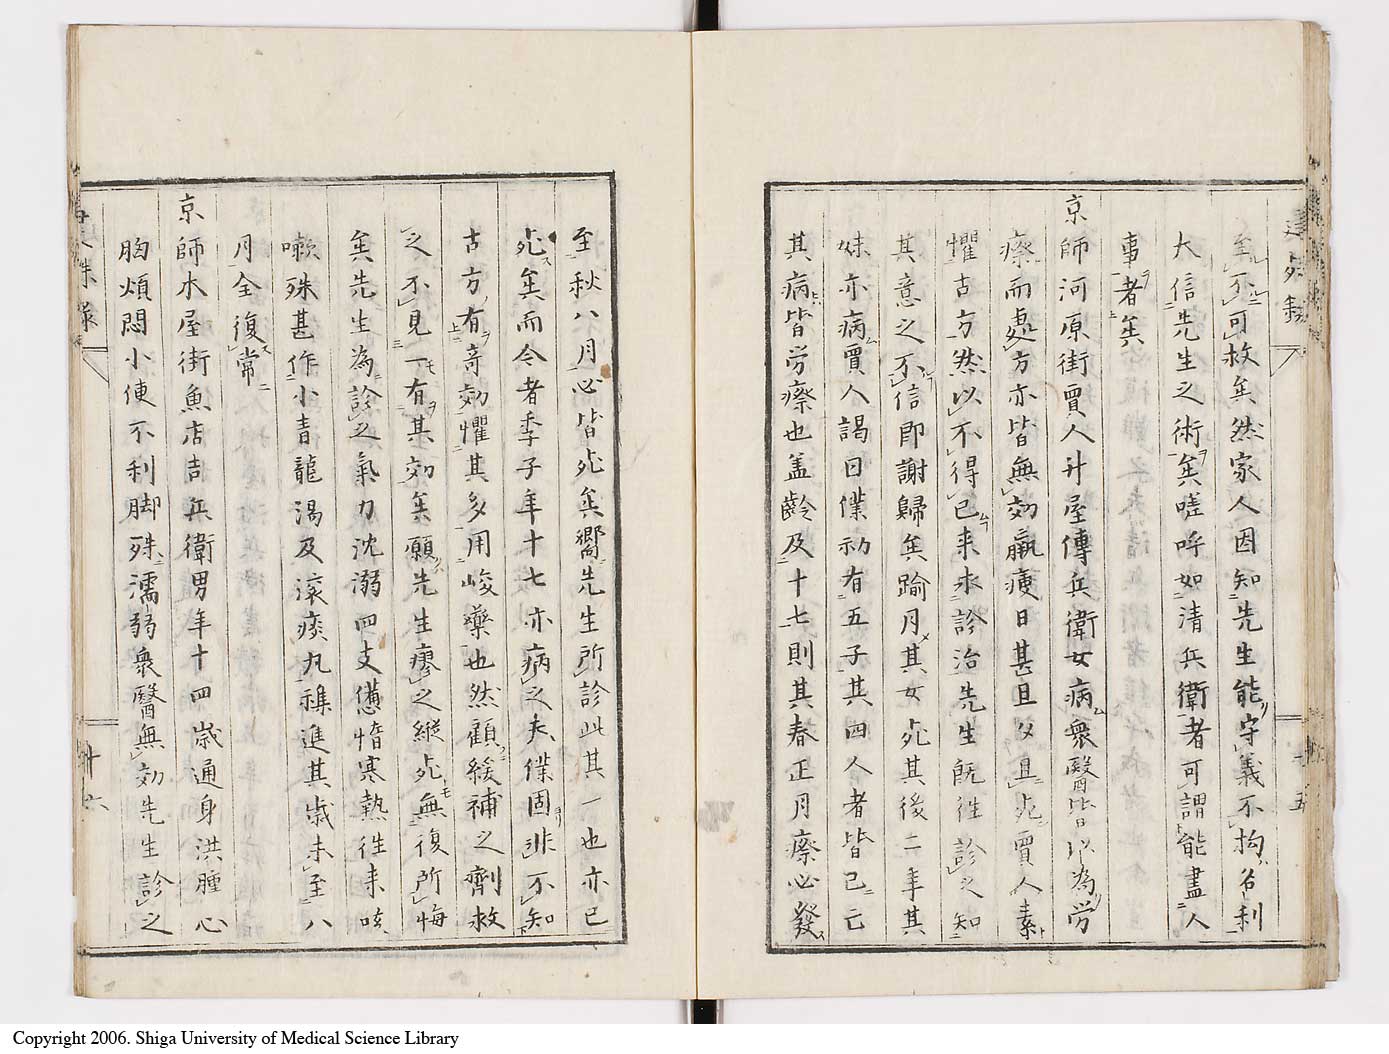 建殊録
十五
至不可救矣然家人因知先生能守義不拘名利
大信先生之術矣嗟呼如清兵衛者可謂能盡人
事者矣
京師河原街賈人升屋傳兵衛女病衆醫皆以為労
瘵而處方亦皆無効羸瘦日甚且夕且死賈人素
懼古方然以不得已来求診治先生既往診之知
其意之不信即謝歸矣踰月其女死其後二年其
妹亦病賈人謁曰僕初有五子其四人者皆已亡
其病皆労瘵也盖齡及十七則其春正月瘵必發
至秋八月必皆死矣嚮先生所診此其一也亦已
死矣而今者季子年十七亦病之夫僕固非不知
古方有竒効懼其多用峻藥也然顧緩補之劑救
之不見一有其効矣願先生療之縱死無復所悔
矣先生為診之氣力沈溺四支憊惰寒熱徃来咳
嗽殊甚作小青龍湯及滾痰丸雜進其歳未至八
月全復常
京師木屋街魚店吉兵衛男年十四歳通身洪腫心
胸煩悶小便不利脚殊濡弱衆醫無効先生診之
建殊録
十六
Copyright 2006. Shiga University of Medical Science Library